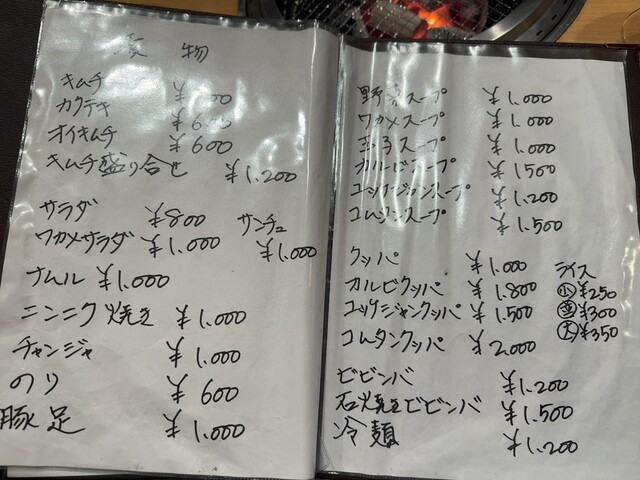 物
キムチ
カクテキ ¥600
オイキムチ ¥600
キムチ盛り合せ ¥1.200
サラダ ¥800
サンチュ ¥1.000
ワカメサラダ ¥1.000
ナムル ¥1.000
ニンニク焼き ¥1.000
チャンジャ ¥1.000
のり ¥600
豚足 ¥1.000
野菜スープ ¥1.000
ワカメスープ ¥1.000
玉子スープ ¥1.000
カルビスープ ¥1500
ユッケジャンスープ ¥1.200
コムタンスープ ¥1.500
クッパ ¥1.000
カルビクッパ ¥1.800
ユッケジャンクッパ ¥1.500
コムタンクッパ ¥2.000
ライス
小 ¥250
¥300
大 ¥350
ビビンバ ¥1.200
石焼きビビンバ ¥1.500
冷麺 ¥1.200